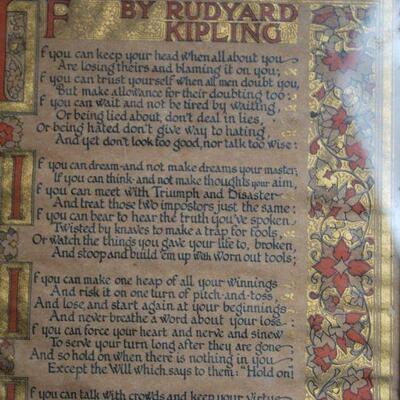 IF BY RUDYARD
KIPLING
If you can keep your head when all about you
Are losing theirs and blaming it on you;
If you can trust yourself when all men doubt you,
But make allowance for their doubting too:
If you can wait and not be tired by waiting,
Or being lied about, don't deal in lies,
Or being hated don't give way to hating,
And yet don't look too good, nor talk too wise:
If you can dream-and not make dreams your master;
If you can think-and not make thoughts your aim,
If you can meet with Triumph and Disaster
And treat those two impostors just the same:
If you can bear to hear the truth you've spoken
Twisted by knaves to make a trap for fools,
Or watch the things you gave your life to, broken,
And stoop and build 'em up with worn out tools;
If you can make one heap of all your winnings
And risk it on one turn of pitch-and-toss,
And lose and start again at your beginnings
And never breathe a word about your loss:
If you can force your heart and nerve and sinew
To serve your turn long after they are gone
And so hold on when there is nothing in you
Except the Will which says to them: "Hold on!"
If you can talk with crowds and keep your virtue